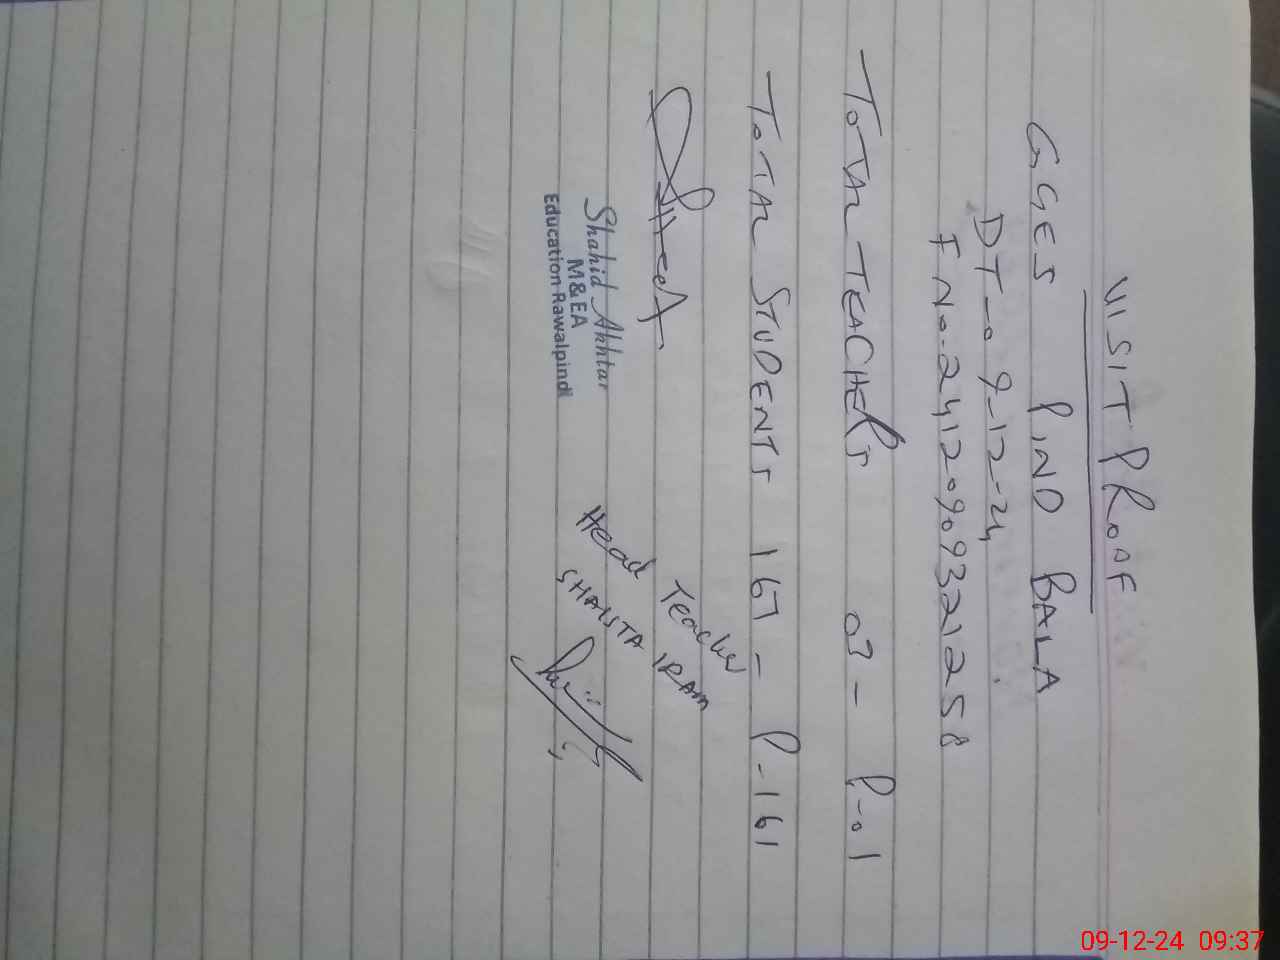 VISIT PROOF
GGES PIND BALA
DT-09-12-24
F No. 24120909321258
TOTAL TEACHERS 03 - P-01
TOTAL STUDENTS 167 - P-161
Shahid Akhtar
M&EA
Education Rawalpindi
Head Teacher
SHAISTA IRAM
09-12-24 09:37